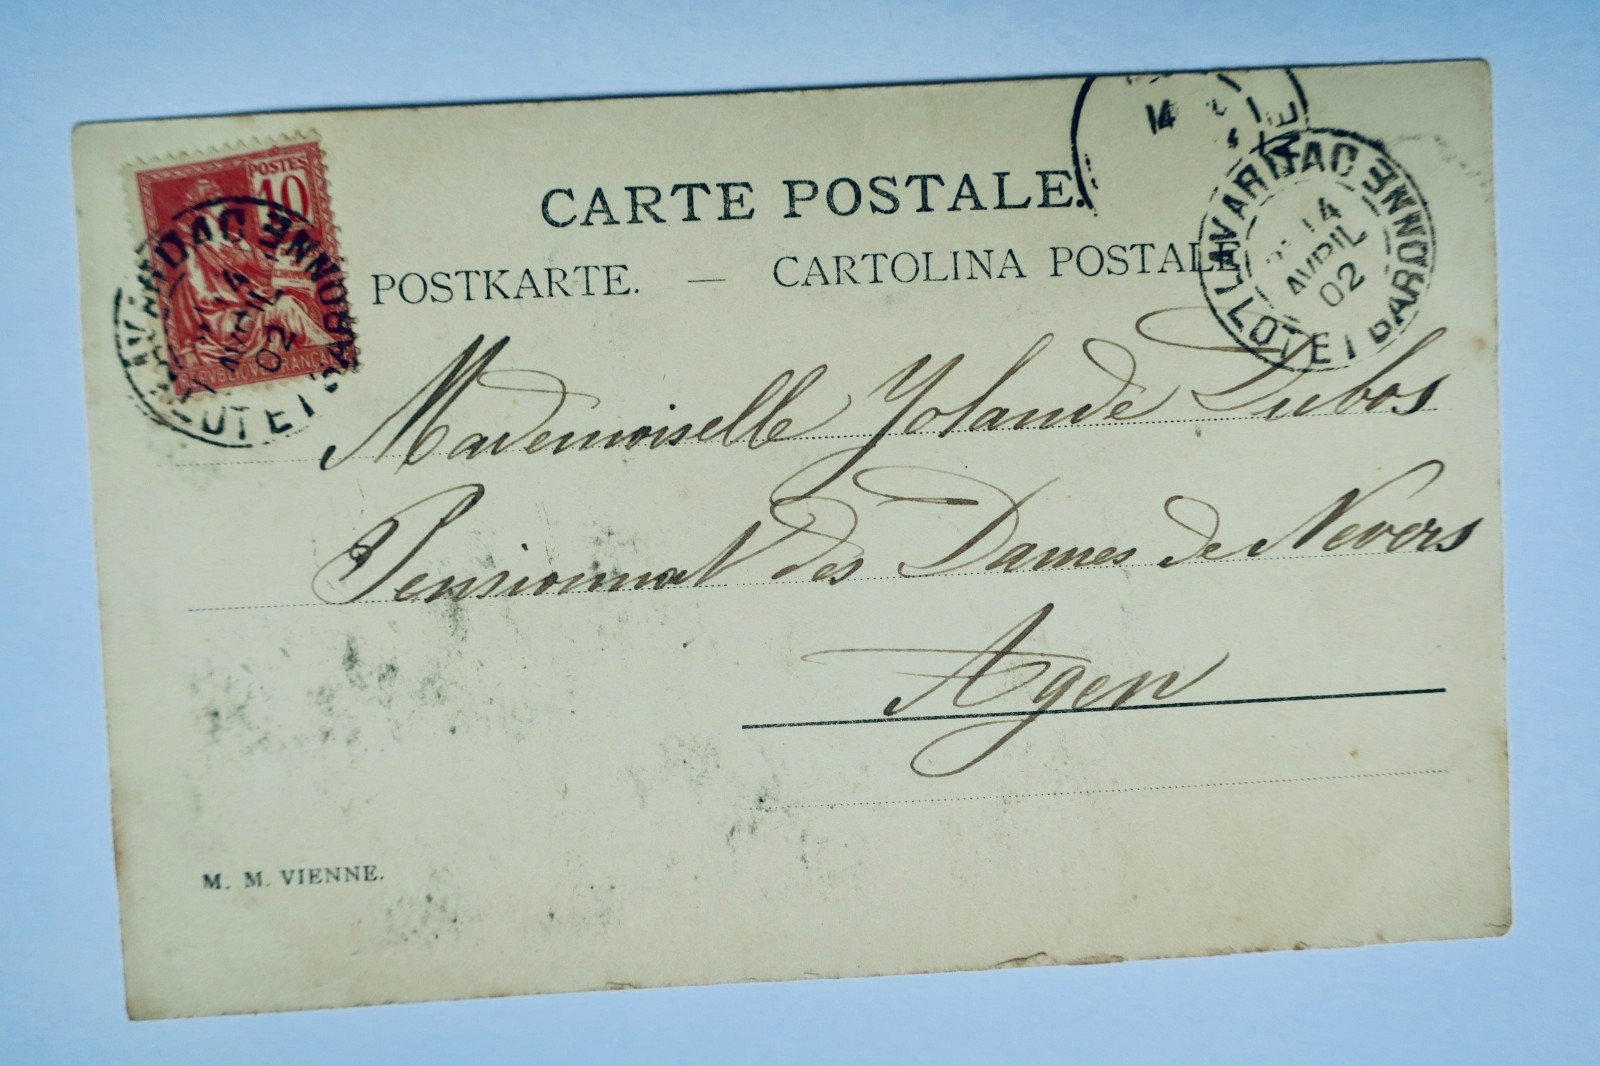 POSTES
10
REPVBLIQVE FRANÇAISE
LAVARDAC
14
AVRIL
02
LOT ET GARONNE
CARTE POSTALE.
POSTKARTE. — CARTOLINA POSTALE
14
LAVARDAC
14
AVRIL
02
LOT ET GARONNE
Mademoiselle Yolande Dubos
Pensionnat des Dames de Nevers
Agen
M. M. VIENNE.